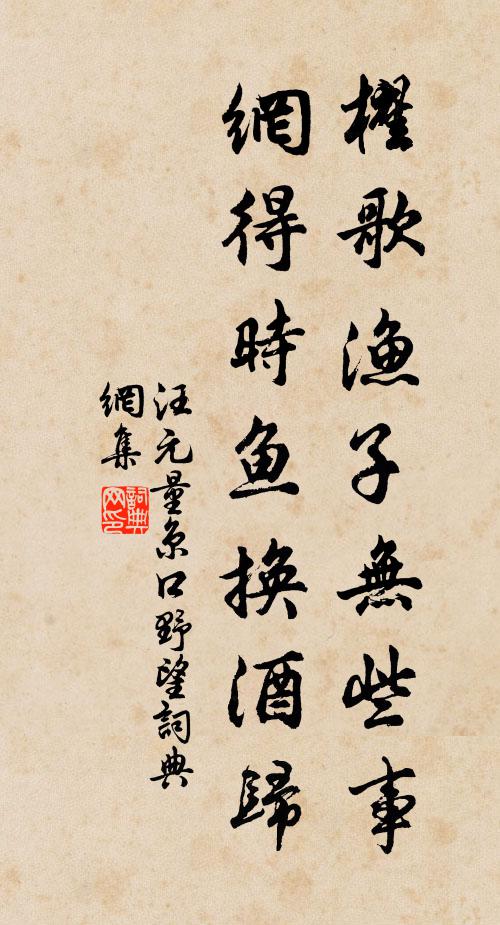 櫂歌漁子無些事
網得時魚換酒歸
汪元量京口野望詞典
網集
詞典
网印